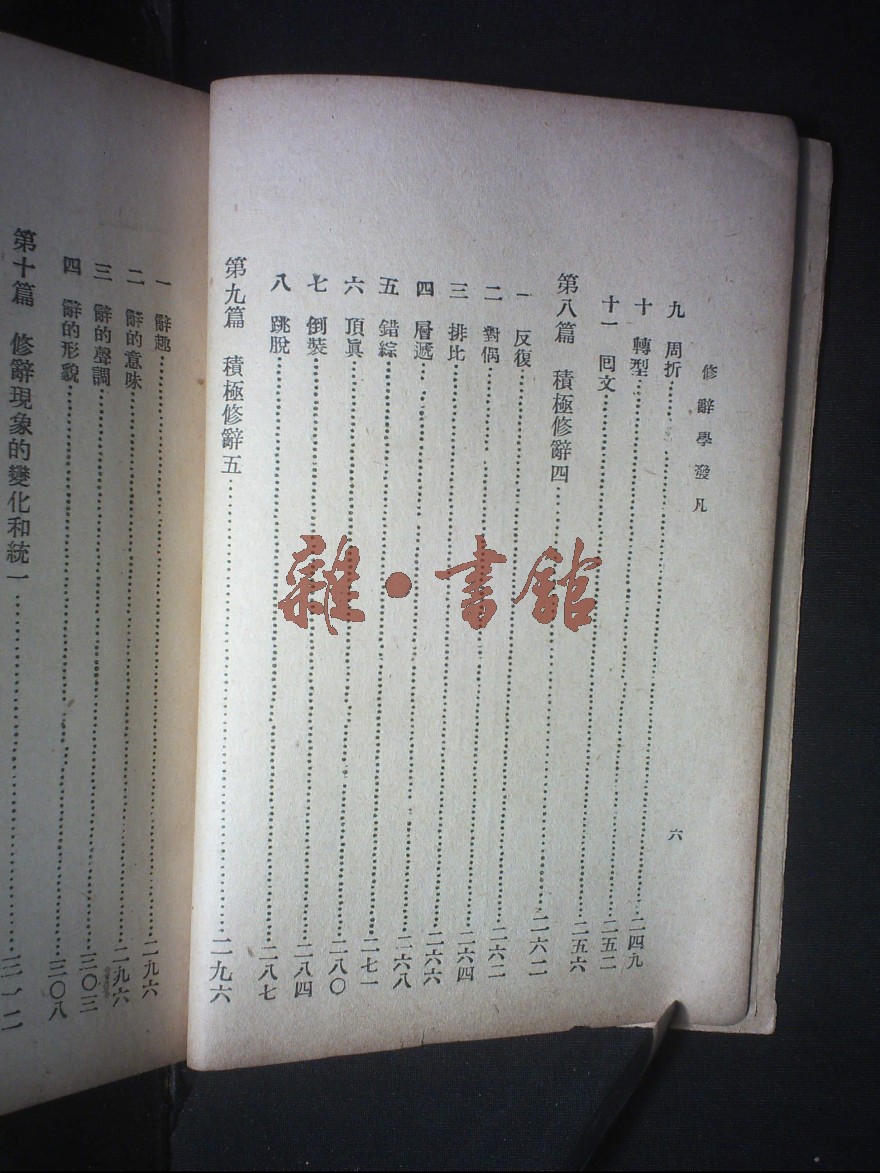 修辭學發凡
九 周折……二四九
十 轉型……二五二
十一 回文……二五六
第八篇 積極修辭四……二六二
一 反復……二六二
二 對偶……二六四
三 排比……二六六
四 層遞……二六八
五 錯綜……二七一
六 頂眞……二八〇
七 倒裝……二八四
八 跳脫……二八七
第九篇 積極修辭五……二九六
六
一 辭趣……二九六
二 辭的意味……二九六
三 辭的聲調……三〇三
四 辭的形貌……三〇八
第十篇 修辭現象的變化和統一……三一二
雜·書館